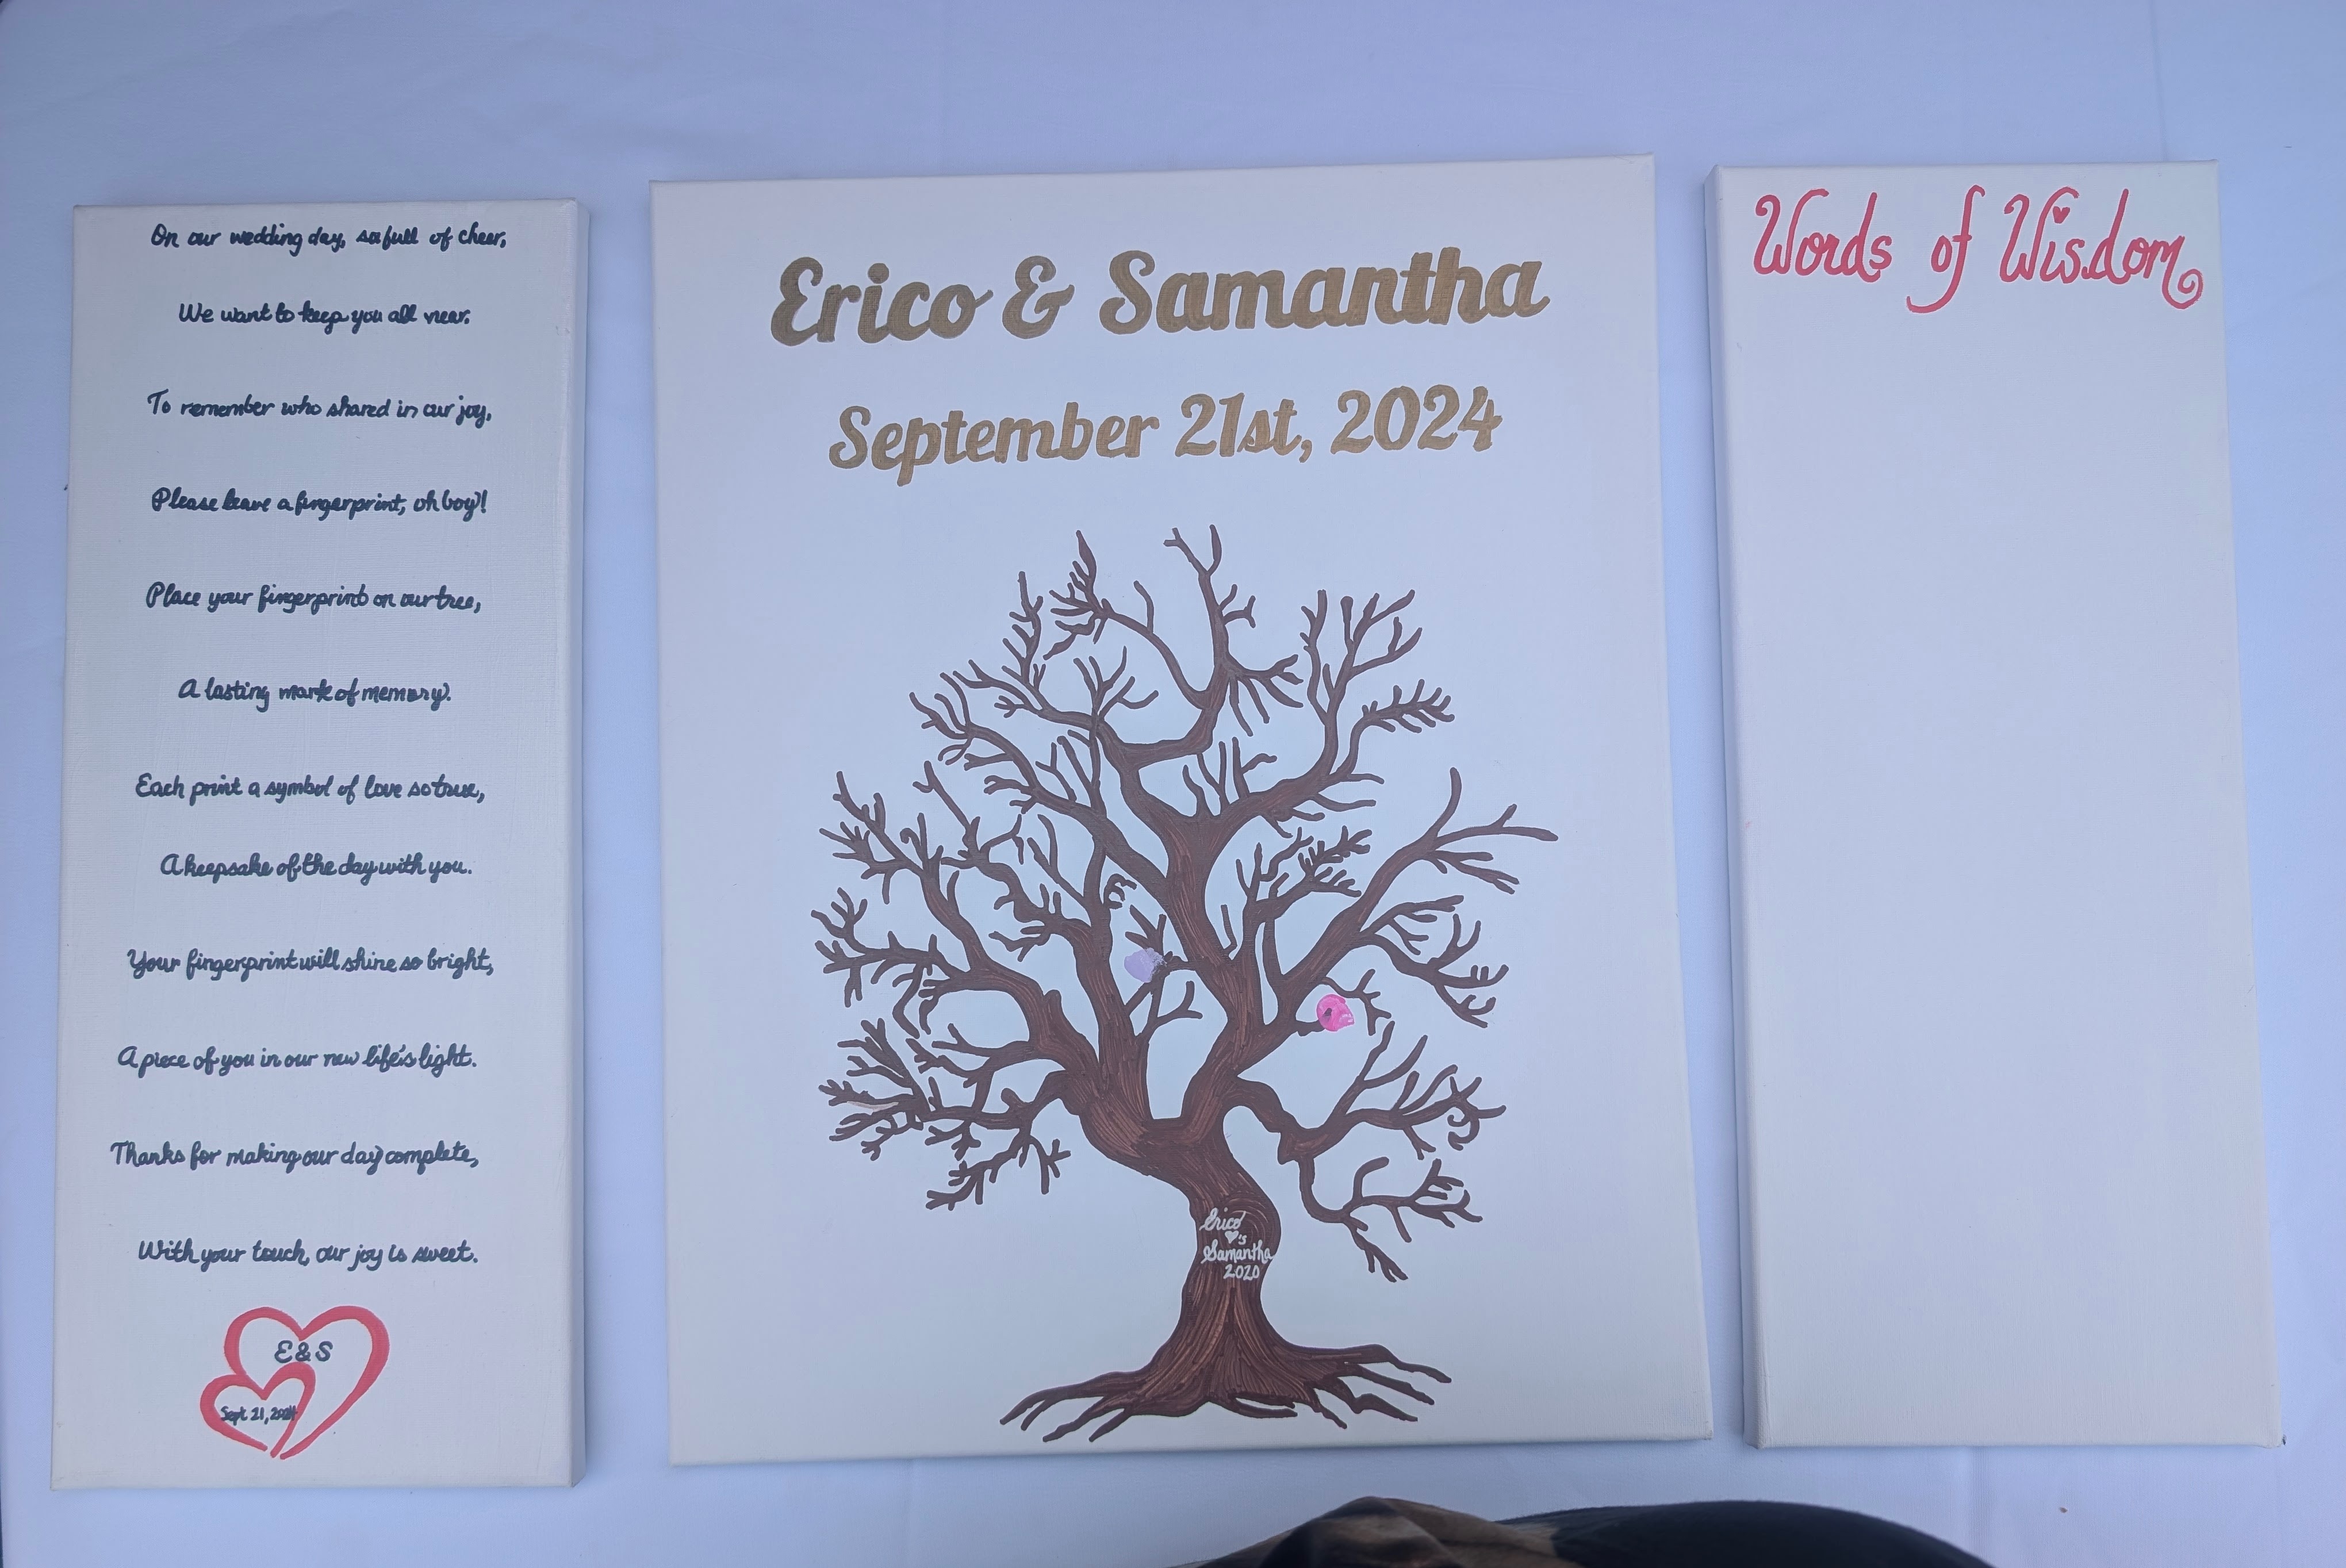 On our wedding day, so full of cheer,
We want to keep you all near.
To remember who shared in our joy,
Please leave a fingerprint, oh boy!
Place your fingerprint on our tree,
A lasting mark of memory.
Each print a symbol of love so true,
A keepsake of the day with you.
Your fingerprint will shine so bright,
A piece of you in our new life's light.
Thanks for making our day complete,
With your touch, our joy is sweet.
E & S
Sept 21, 2024
Erico & Samantha
September 21st, 2024
Erico
♥'s
Samantha
2020
Words of Wisdom